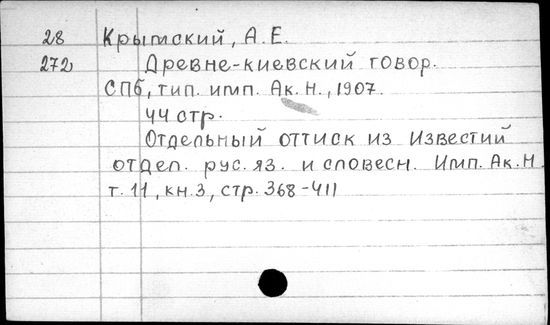 28 Крымский, А.Е.
272 Древне-киевский говор.
СПб, тип. имп. Ак. Н., 1907.
44 стр.
Отдельный оттиск из Известий
отдел. рус. яз. и словесн. Имп. Ак. Н.
т. 11, кн. 3, стр. 368-411